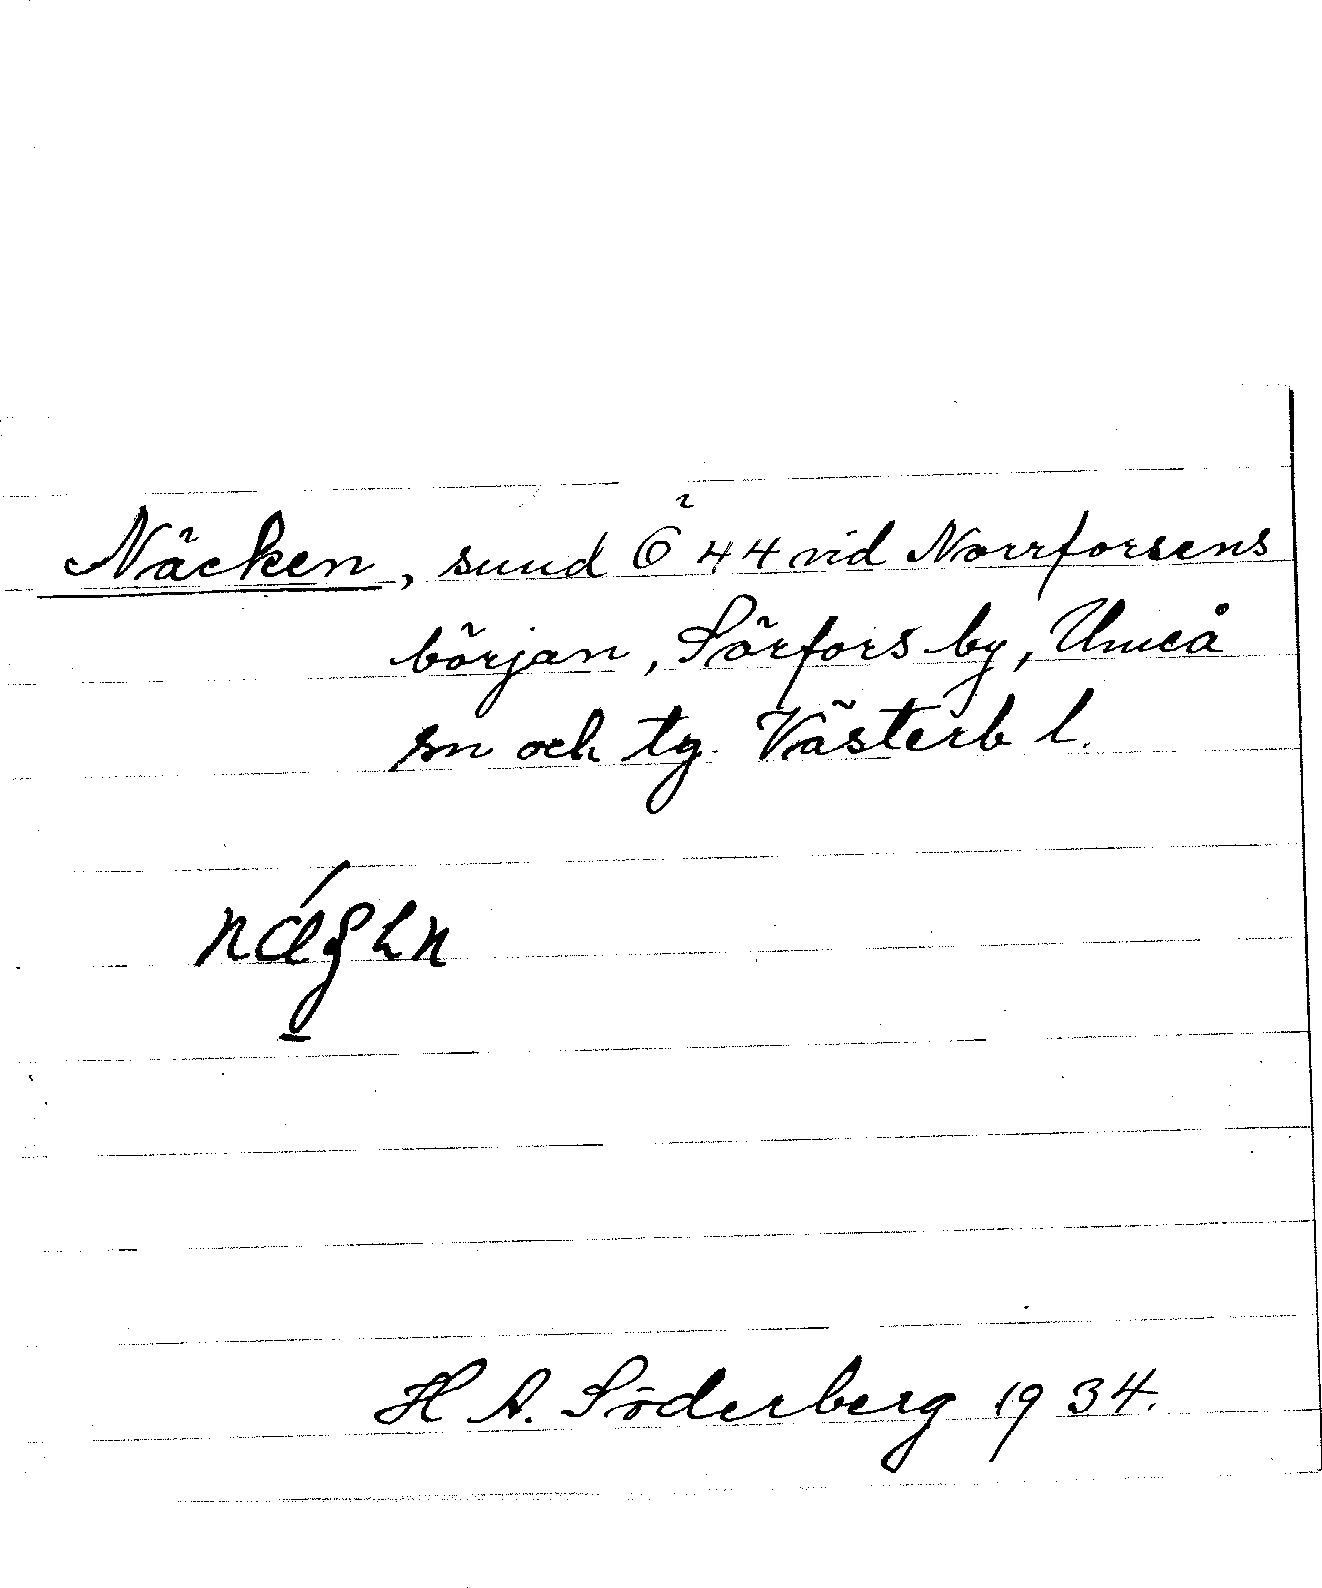 Näcken, sund Ö 44 vid Norrforsens
början, Sörfors by, Umeå
sn och tg. Västerb l.
H A. Söderberg 1934.